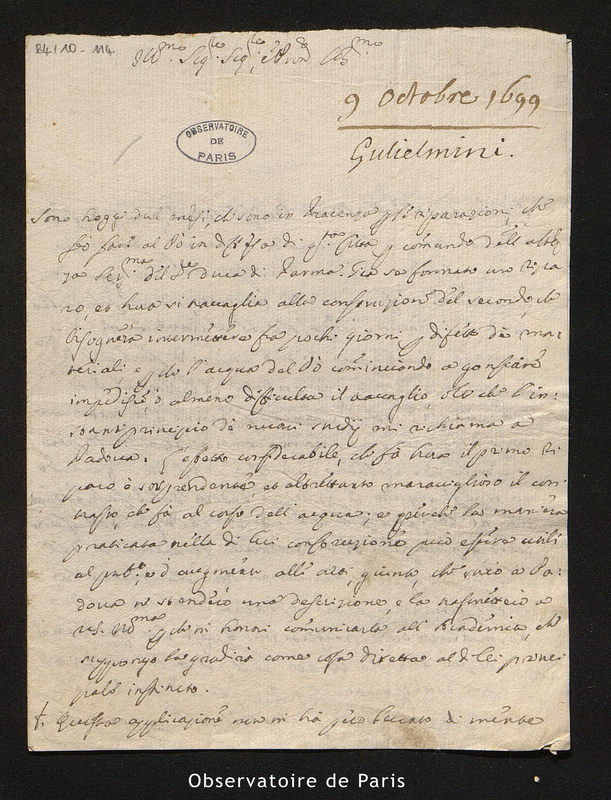 B4/10-114
Ill.mo Sig.re Sig.re e Pron Col.mo
9 Octobre 1699
Gulielmini.
OBSERVATOIRE
DE
PARIS
Sono hoggi due mesi, che sono in Piacenza p le riparazioni, che
si fanno al Pò in difesa di q.ta Città p comando dell'altez
za Ser.ma del Sr Duca di Parma. Già s'è formato un ripa
ro, et hora si travaglia alla construzione del secondo, che
bisognerà intermettere fra pochi giorni p difetto de ma=
teriali e p che l'acqua del Pò cominciando a gonfiare
impedisce, ò almeno difficulta il travaglio, oltre che l'in=
stante principio de nuovi studij mi richiama a
Padova. L'effetto considerabile, che fà hora il primo ri
paro è sorprendente, et altrettanto maraviglioso il con
trasto, che fà al corso dell'acqua; e perche la maniera
praticata nella di lui construzione può essere utile
al pub.co, e d'augmento alle arti, giunto, che sarò a Pa=
dova ne stenderò una descrizione, e la trasmetterò a
V.S. Ill.ma p che mi honori comunicarla all'Academia, che
suppongo la gradirà come cosa diretta al di lei princi
pale instituto.
Questa applicazione non mi hà però levato di mente
Observatoire de Paris